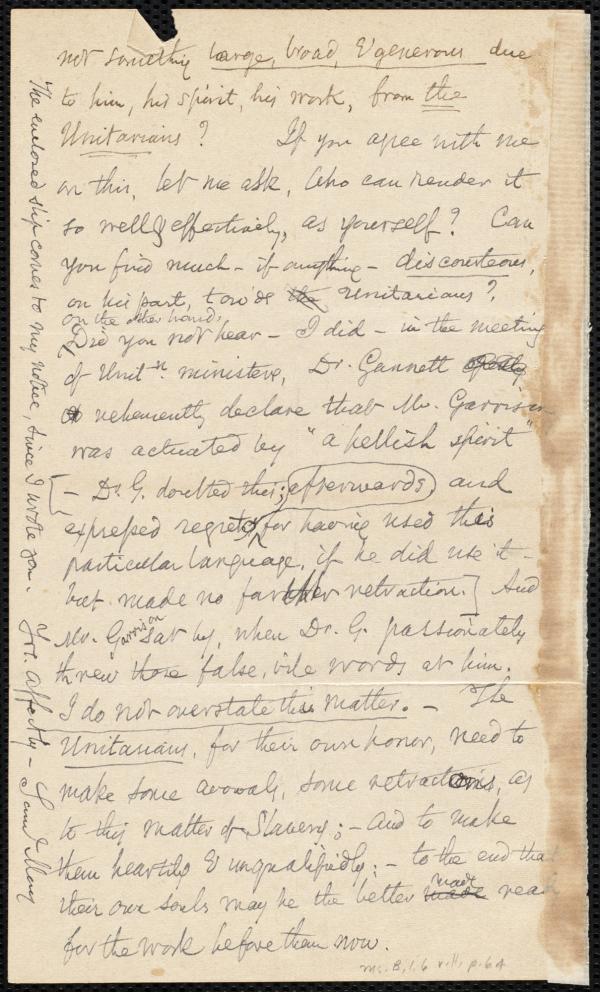 not something large, broad, & generous due
to him, his spirit, his work, from the
Unitarians? If you agree with me
on this, let me ask, Who can render it
so well & effectively, as yourself? Can
you find much - if anything - discourteous,
on his part, tow'ds the Unitarians?
on the other hand,
Did you not hear - I did - in the meeting
of Unit'n. ministers, Dr. Gannett
vehemently declare that Mr. Garrison
was actuated by "a hellish spirit"
- Dr. G. doubted this, afterwards, and
expressed regrets, for having used this
particular language, if he did use it -
but made no farther retraction.] And
Mr. Garrison sat by, when Dr. G. passionately
threw those false, vile words at him.
I do not overstate this matter. - The
Unitarians, for their own honor, need to
make some avowals, some retractions, as
to this matter of Slavery; - and to make
them heartily & unqualifiedly; - to the end that
their own souls may be the better made made read
for the work before them now.
The enclosed slip comes to my notice, since I wrote you. Yrs. Affectly - Saml. May
Ms. B.1.6 v.11, p. 64